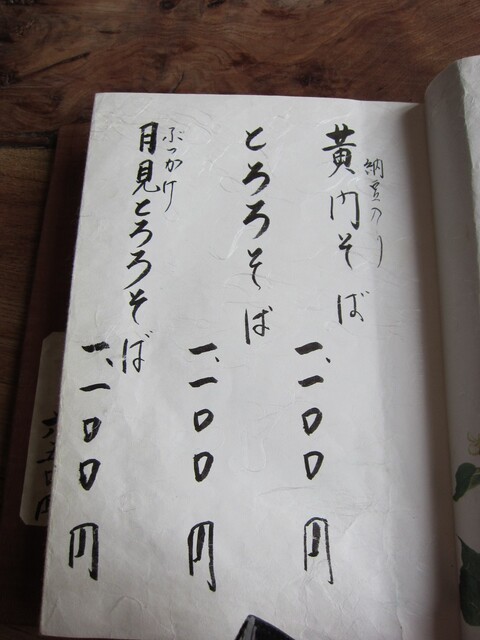 黄内そば 一、一〇〇円
納豆入り
とろろそば 一、一〇〇円
ぶっかけ
月見とろろそば 一、一〇〇円